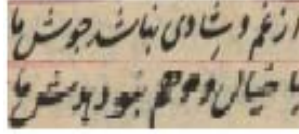 از غم و شادی نباشد جوش ما
با خیال و وهم نبود هوش ما